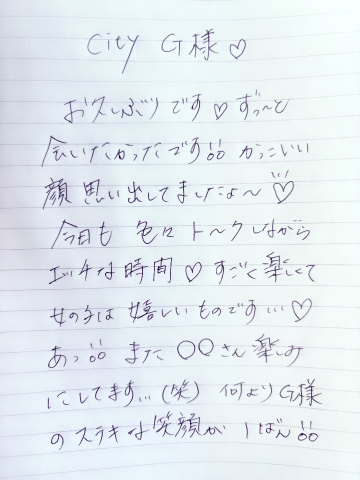 City G様♡
お久しぶりです♡ずっ〜と
会いたかったです!! かっこいい
顔 思い出してましたよ〜♡
今日も 色々 トークしながら
エッチな時間♡ すごく楽しくて
女の子は 嬉しいものです…♡
あっ!! また 〇〇さん楽しみ
にしてます…(笑) 何よりG様
のステキな笑顔が 1ばん!!